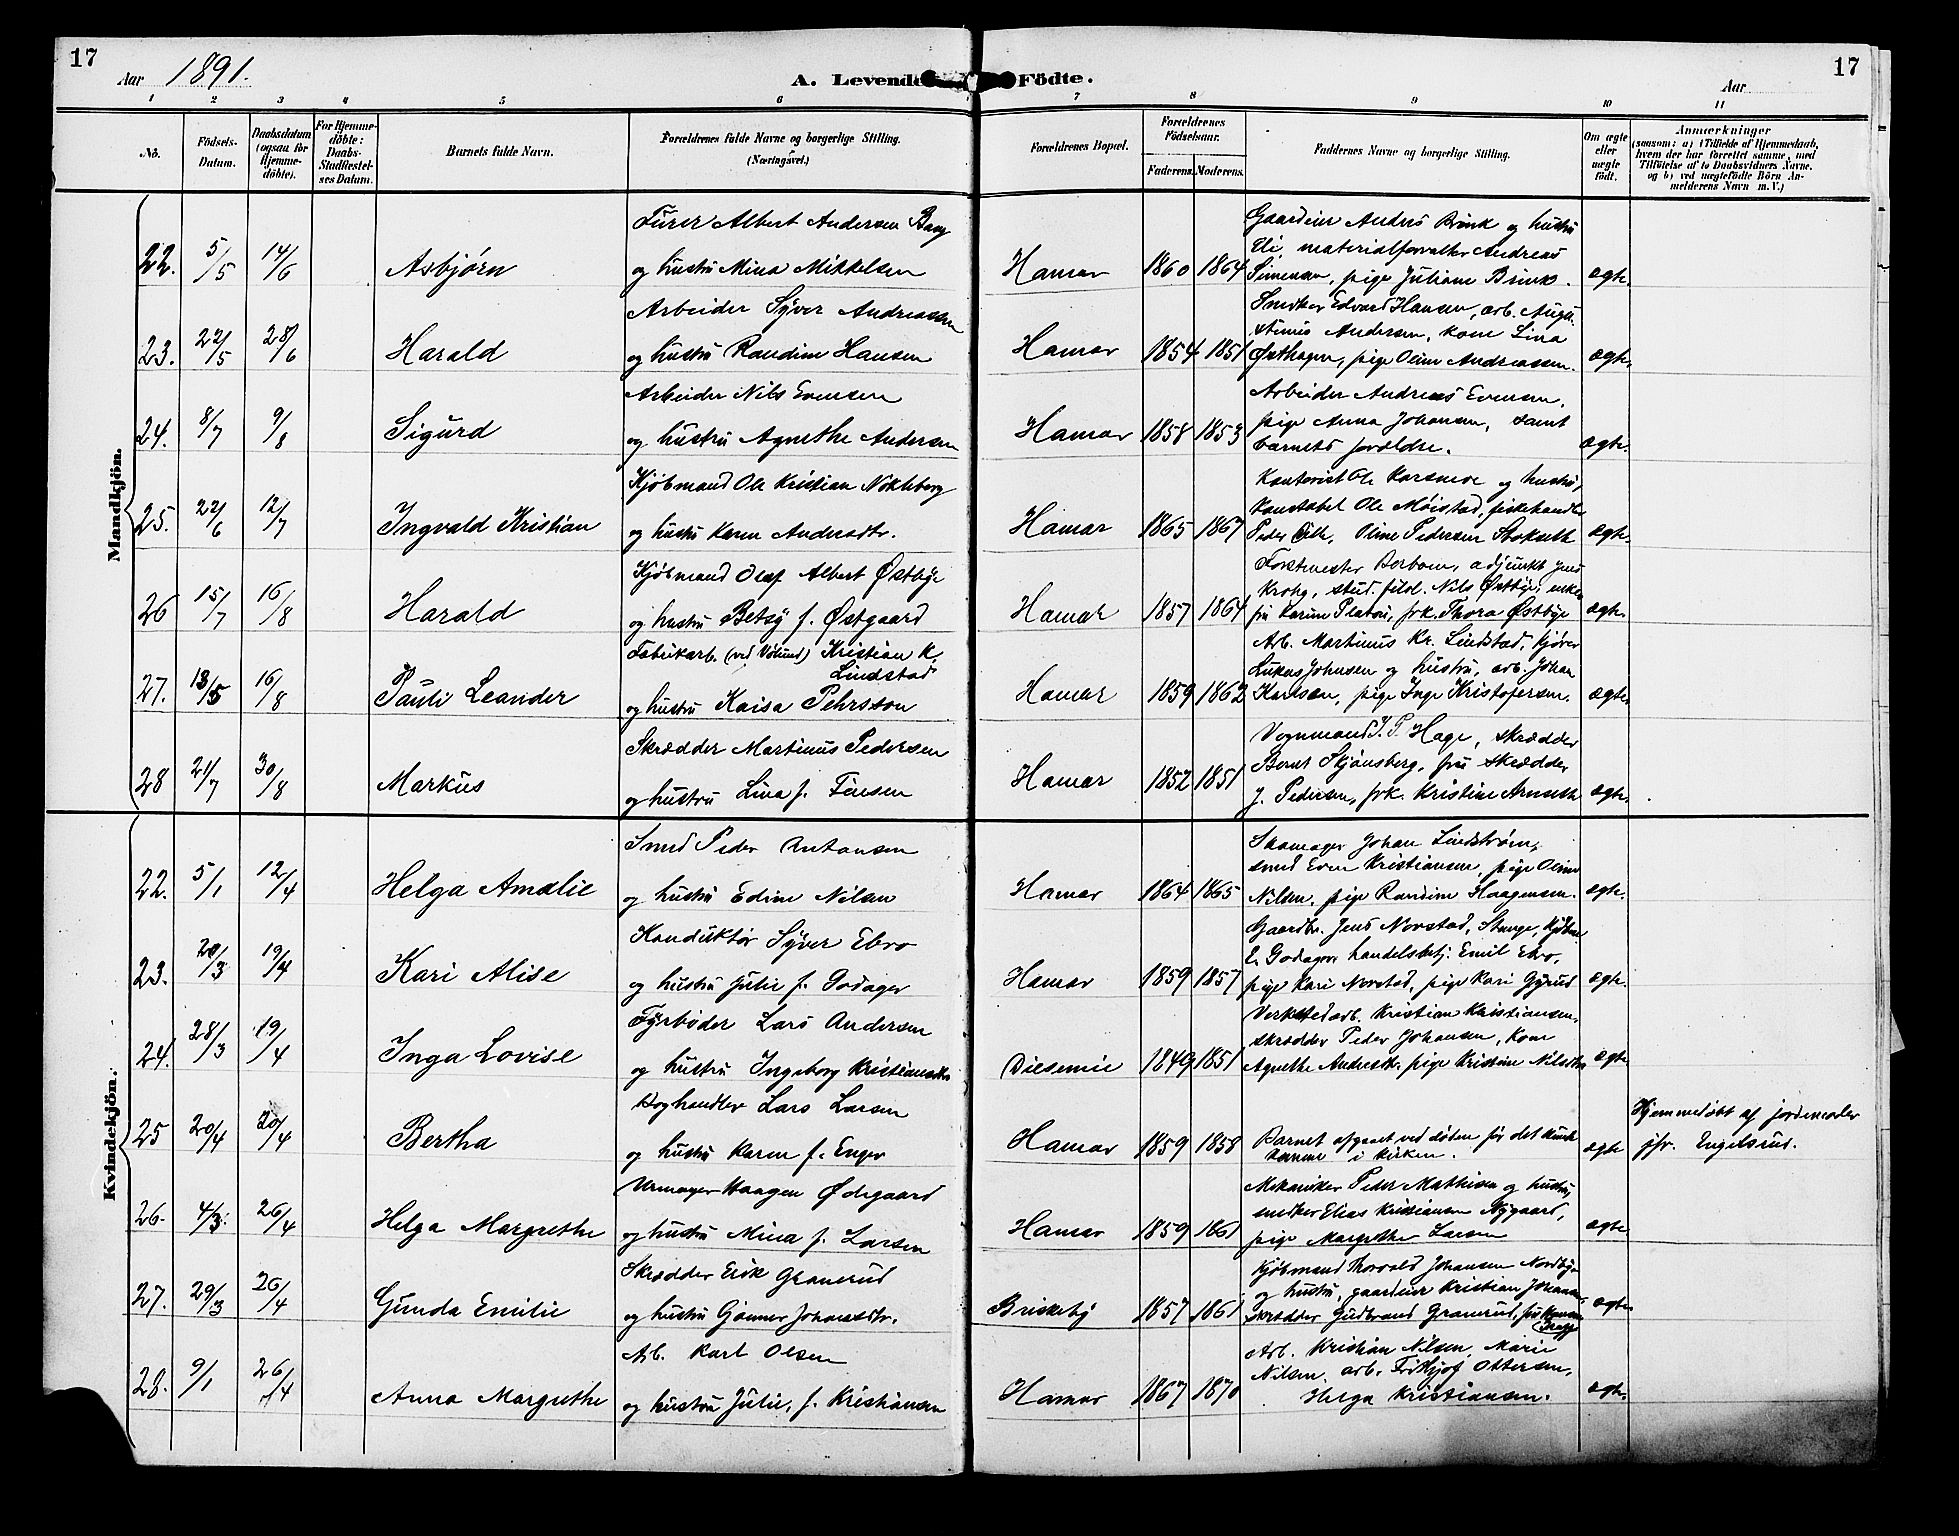 17
Aar 1891.
A. Levende Födte.
Aar
17
1 2 3 4 5 6 7 8 9 10 11
No.
Födsels-Datum.
Daabsdatum (ogsaa for Hjemme-döbte).
For Hjemme-döbte: Daabs-Stadfæstel-ses Datum.
Barnets fulde Navn.
Forældrenes fulde Navne og borgerlige Stilling. (Næringsvei.)
Forældrenes Bopæl.
Forældrenes Födselsaar.
Faderens. Moderens.
Faddernes Navne og borgerlige Stilling.
Om ægte eller uægte födt.
Anmærkninger
(saasom: a) i Tilfælde af Hjemmedaab, hvem der har forrettet samme, med Tilföielse af to Daabsvidners Navne, og b) ved uægtefödte Börn An-melderens Navn m. V.)
Mandkjön.
22. 5/5 14/6 Asbjörn
Furer Albert Andersen Bang
og hustru Mina Mikkelsen
Hamar 1860 1864
Gaardeier Anders Brink og hustru
Eli, materialforvalter Andreas
Simensen, pige Juliane Brink.
ægte.
23. 22/5 28/6 Harald
Arbeider Syver Andreassen
og hustru Randine Hansen
Hamar 1854 1851
Snedker Edvard Hansen, arb. Augu-
stinus Andersen, kone Lina
Østhagen, pige Oline Andreassen.
ægte.
24. 8/7 9/8 Sigurd
Arbeider Nils Evensen
og hustru Agnethe Andersen
Hamar 1858 1853
Arbeider Andreas Evensen,
pige Anna Johansen, samt
barnets forældre.
ægte.
25. 22/6 12/7 Ingvald Kristian
Kjöbmand Ole Kristian Nökleberg
og hustru Karen Andersdtr.
Hamar 1865 1867
Kontorist Ole Korsmoe og hustru,
Konstabel Ole Möistad, fiskehandler
Peder Lille, Oline Pedersen Stokseth
ægte.
26 15/7 16/8 Harald
Kjöbmand Olaf Albert Østbye
og hustru Betsy f. Østgaard
Hamar 1857 1864
Forstmester Barbom, adjunkt Jens
Krohg, stud. filol. Nils Østbye, enke-
fru Karine Platou, frk. Thora Østbye
ægte.
27. 13/5 16/8 Pauli Leander
Fabrikarb. (ved Vølund) Kristian K.
Lindstad
og hustru Kaisa Pehrsson
Hamar 1859 1862
Arb. Martinus Kr. Lindstad, kjörer
Lukas Johnsen og hustru, arb. Johan
Karlsen, pige Inge Kristofersen.
ægte.
28 21/7 30/8 Markus
Skrædder Martinus Pedersen
og hustru Lina f. Finsen
Hamar 1852 1851
Vognmand J. P. Hage, skrædder
Bernt Skjönsberg, fru skrædder
J. Pedersen, frk. Kristine Arneseth
ægte.
Kvindekjön.
22. 5/1 12/4 Helga Amalie
Smed Peder Antonsen
og hustru Edine Nilsen
Hamar 1864 1865
Skomager Johan Lindström,
smed Even Kristiansen, pige Oline
Nilsen, pige Randine Haagensen.
ægte.
23. 20/3 19/4 Kari Alise
Konduktör Syver Ebro
og hustru Julie f. Godager
Hamar 1859 1857
Gaardbr. Jens Norstad, Stange, Kjöbm.
L. Godager, handelsbetj. Emil Ebro,
pige Kari Norstad, pige Kari Gyrud
ægte.
24. 28/3 19/4 Inga Lovise
Fyrböder Lars Andersen
og hustru Ingeborg Kristiansdtr
Disenvie 1849 1851
Verkstedarb. Kristian Kristiansen,
skrædder Peder Johansen, Kone
Agnethe Andersdtr. pige Kristine Nilsdtr
ægte.
25 20/4 20/4 Bertha
Boghandler Lars Larsen
og hustru Karen f. Enger
Hamar 1859 1858
Barnet afgaaet ved döden för det kunde
komme i kirken.
ægte
Hjemmedöbt af jordemoder
jfr. Engelsrud.
26. 4/3. 26/4 Helga Margrethe
Urmager Haagen Ødegaard
og hustru Mina f. Larsen
Hamar 1859 1861
Mekaniker Peder Mathisen og hustru,
snedker Elias Kristiansen Nygaard,
pige Margrethe Larsen
ægte
27. 29/3 26/4 Gunda Emilie
Skrædder Erik Granerud
og hustru Gunner Johannesdtr.
Briskeby 1857 1861
Kjöbmand Thorvald Johansen Nordbye
og hustru, gaardeier Kristian Johannes,
skrædder Gudbrand Granerud,
ægte
28. 9/1 26/4 Anna Margrethe
Arb. Karl Olsen
og hustru Julie, f. Kristiansen
Hamar 1867 1870
Arb. Kristian Nilsen, Marie
Nilsen, arb. Fridtjof Ottersen,
Helga Kristiansen.
ægte.